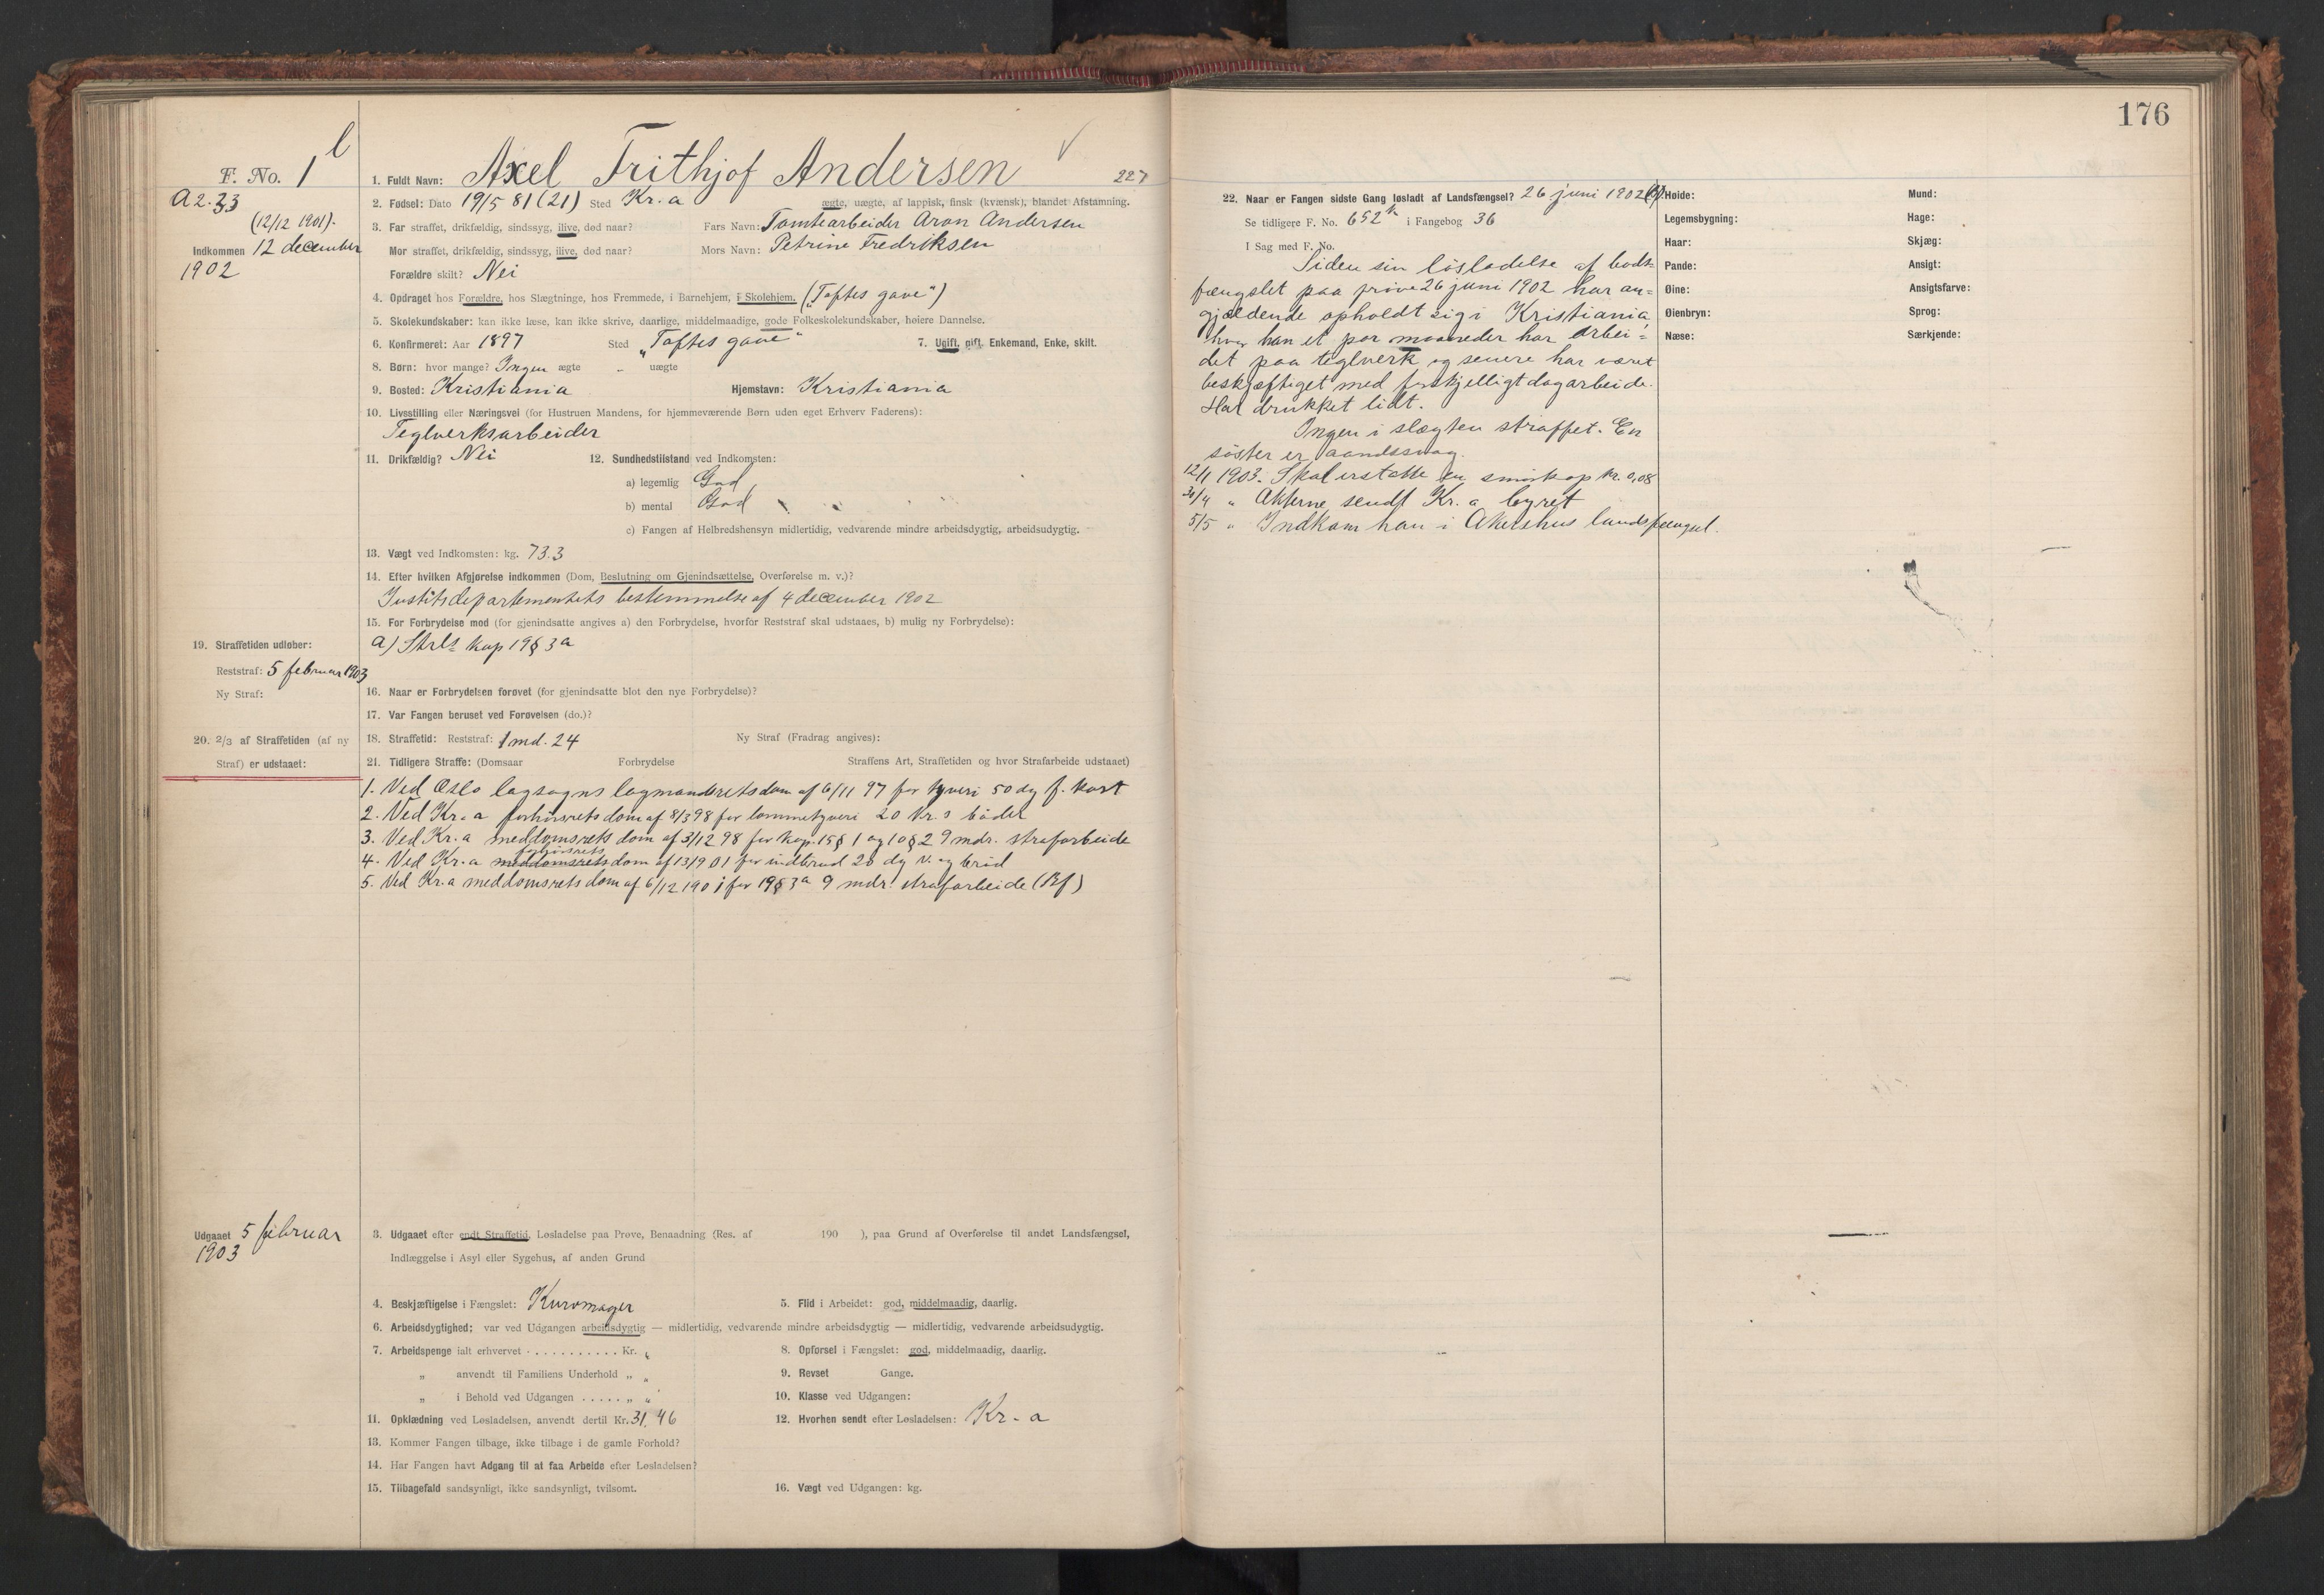 176
F. No. 1 l
A 2.33
(12/12 1901).
Indkommen 12 december
1902
1. Fuldt Navn: Axel Frithjof Andersen 227
2. Fødsel: Dato 19/5 81 (21) Sted Kr.a ægte, uægte, af lappisk, finsk (kvænsk), blandet Afstamning.
3. Far straffet, drikfældig, sindssyg, ilive, død naar? Fars Navn: Tomtearbeider Aron Andersen
Mor straffet, drikfældig, sindssyg, ilive, død naar? Mors Navn: Petrine Fredriksen
Forældre skilt? Nei
4. Opdraget hos Forældre, hos Slægtninge, hos Fremmede, i Barnehjem, i Skolehjem. („Toftes gave“)
5. Skolekundskaber: kan ikke læse, kan ikke skrive, daarlige, middelmaadige, gode Folkeskolekundskaber, høiere Dannelse.
6. Konfirmeret: Aar 1897 Sted „Toftes gave“ 7. Ugift, gift, Enkemand, Enke, skilt.
8. Børn: hvor mange? Ingen ægte „ uægte
9. Bosted: Kristiania Hjemstavn: Kristiania
10. Livsstilling eller Næringsvei (for Hustruen Mandens, for hjemmeværende Børn uden eget Erhverv Faderens):
Teglverksarbeider
11. Drikfældig? Nei 12. Sundhedstilstand ved Indkomsten:
a) legemlig God
b) mental God
c) Fangen af Helbredshensyn midlertidig, vedvarende mindre arbeidsdygtig, arbeidsudygtig.
13. Vægt ved Indkomsten: kg. 73.3
14. Efter hvilken Afgjørelse indkommen (Dom, Beslutning om Gjenindsættelse, Overførelse m. v.)?
Justitsdepartementets bestemmelse af 4 december 1902
15. For Forbrydelse mod (for gjenindsatte angives a) den Forbrydelse, hvorfor Reststraf skal udstaaes, b) mulig ny Forbrydelse):
a) Strl. kap 19 § 3 a
19. Straffetiden udløber:
Reststraf: 5 februar 1903
Ny Straf:
16. Naar er Forbrydelsen forøvet (for gjenindsatte blot den nye Forbrydelse)?
17. Var Fangen beruset ved Forøvelsen (do.)?
20. 2/3 af Straffetiden (af ny
Straf) er udstaaet:
18. Straffetid: Reststraf: 1 md. 24 Ny Straf (Fradrag angives):
21. Tidligere Straffe: (Domsaar Forbrydelse Straffens Art, Straffetiden og hvor Strafarbeide udstaaet)
1. Ved Oslo lagsogns lagmandsretsdom af 6/11 97 for tyveri 50 dg f. kost
2. Ved Kr.a forhørsretsdom af 8/3 98 for lommetyveri 20 kr.s bøder
3. Ved Kr.a meddomsrets dom af 3/12 98 for kap. 15 § 1 og 10 § 2 9 mdr. strafarbeide
forhørsrets
4. Ved Kr.a meddomsrets dom af 13/9 01 for indbrud 20 dg v. og brød
5. Ved Kr.a meddomsrets dom af 6/12 1901 for 19 § 3 a 9 mdr. strafarbeide (Bf)
Udgaaet 5 februar
1903
3. Udgaaet efter endt Straffetid, Løsladelse paa Prøve, Benaadning (Res. af 190 ), paa Grund af Overførelse til andet Landsfængsel,
Indlæggelse i Asyl eller Sygehus, af anden Grund
4. Beskjæftigelse i Fængslet: Kurvmager 5. Flid i Arbeidet: god, middelmaadig, daarlig.
6. Arbeidsdygtighed; var ved Udgangen arbeidsdygtig — midlertidig, vedvarende mindre arbeidsdygtig — midlertidig, vedvarende arbeidsudygtig.
7. Arbeidspenge ialt erhvervet . . . . . . . . . . . Kr. „ 8. Opførsel i Fængslet: god, middelmaadig, daarlig.
„ anvendt til Familiens Underhold „ „ 9. Revset Gange.
„ i Behold ved Udgangen . . . . . „ „ 10. Klasse ved Udgangen:
11. Opklædning ved Løsladelsen, anvendt dertil Kr. 31.46 12. Hvorhen sendt efter Løsladelsen: Kr.a
13. Kommer Fangen tilbage, ikke tilbage i de gamle Forhold?
14. Har Fangen havt Adgang til at faa Arbeide efter Løsladelsen?
15. Tilbagefald sandsynligt, ikke sandsynligt, tvilsomt. 16. Vægt ved Udgangen: kg.
22. Naar er Fangen sidste Gang løsladt af Landsfængsel? 26 juni 1902
Se tidligere F. No. 652 k i Fangebog 36
I Sag med F. No.
Siden sin løsladelse af bods-
fængslet paa prøve 26 juni 1902 har an-
gjældende opholdt sig i Kristiania,
hvor han et par maaneder har arbei-
det paa teglverk og senere har været
beskjæftiget med forskjelligt dagarbeide.
Har drukket lidt.
Ingen i slægten straffet. En
søster er aandssvag.
12/1 1903. Skal erstatte en smørkop kr. 0,08
30/4 „ Akterne sendt Kr.a byret
5/5 „ Indkom han i Akershus landsfængsel.
Høide: Mund:
Legemsbygning: Hage:
Haar: Skjæg:
Pande: Ansigt:
Øine: Ansigtsfarve:
Øienbryn: Sprog:
Næse: Særkjende: